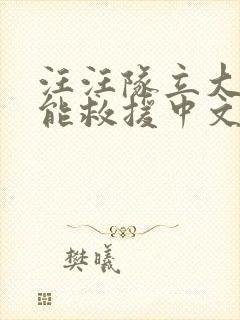 汪汪队立大
能救援中文
樊曦